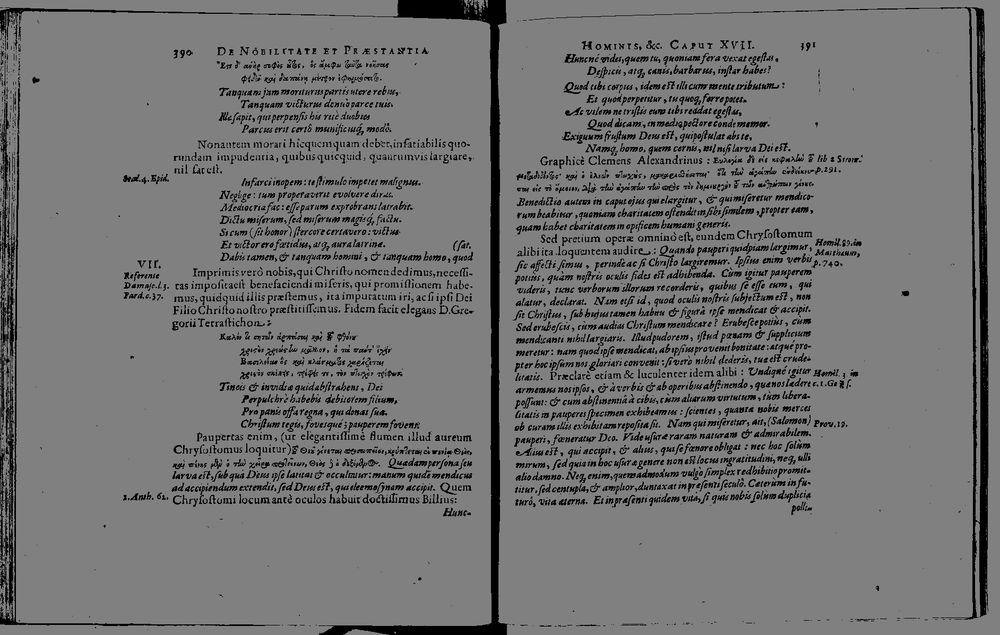 390 DE NOBILITATE ET PRÆSTANTIA
Tanquam jam moriturus partis utere rebus,
Tanquam victurus denuò parce tuis.
Ille sapit, qui perpensis his ritè duobus
Parcus erit certo munificusq́, modo.
Non autem morari hîc quemquam debet, insatiabilis quo-
rundam impudentia, quibus quicquid, quantumvis largiare,
nil sat est.
Stod. 4. Epid.
Infarci inopem: te stimulo impetet malignus.
Neglige: tum properaverit evolvere diras.
Mediocria fac: esse parum exprobrans latrabit.
Dictu miserum, sed miserum magisq́, factu.
Si cum (sit honor) stercore certavero: victus
Et victor ero fœtidus, atq́, aura latrinæ. (sat.
Dabis tamen, & tanquam homini, & tanquam homo, quod
VII.
Referente
Damasc. l. 3.
Par. c. 37.
Imprimis verò nobis, qui Christo nomen dedimus, necessi-
tas imposita est benefaciendi miseris, qui promissionem habe-
mus, quidquid illis præstemus, ita imputatum iri, ac si ipsi Dei
Filio Christo nostro præstitissemus. Fidem facit elegans D. Gre-
gorii Tetrastichon:
Perpulchrè habebis debitorem filium,
Pro panis offa regna, qui donat sua.
Christum tegis, fovesque; pauperem fovens.
Paupertas enim, (ut elegantissimè flumen illud aureum
Chrysostomus loquitur)
Quædam persona seu
larva est, sub quâ Deus ipse latitat & occulitur: manum quidē mendicus
ad accipiendum extendit, sed Deus est, qui eleemosynam accipit. Quem
2. Anth. 62.
Chrysostomi locum antè oculos habuit doctissimus Billius:
Hunc-
HOMINIS, &c. CAPUT XVII. 391
Huncnè vides, quem tu, quoniam fera vexat egestas,
Despicis, atq́, canis, barbarus, instar habes?
Quod tibi corpus, idem est illi cum mente tributum:
Et quod perpetitur, tu quoq́, ferre potes.
Ac vilem ne tristis eum tibi reddat egestas,
Quod dicam, in medio pectore conde memor.
Exiguum frustum Deus est, qui postulat abs te,
Namq́, homo, quem cernis, nil nisi larva Dei est.
Graphicè Clemens Alexandrinus:
lib 2 Strom.
p. 291.
Benedictio autem in caput ejus qui elargitur, & qui miseretur mendico-
rum beabitur, quoniam charitatem ostendit in sibi similem, propter eam,
quam habet charitatem in opificem humani generis.
Sed pretium operæ omnino est, eundem Chrysostomum
alibi ita loquentem audire: Quando pauperi quidpiam largimur,
Homil. 89. in
Matthæum,
p. 740.
sic affecti simus, perinde ac si Christo largiremur. Ipsius enim verbis
potius, quàm nostris oculis fides est adhibenda. Cùm igitur pauperem
videris, tunc verborum illorum recorderis, quibus se esse eum, qui
alatur, declarat. Nam etsi id, quod oculis nostris subjectum est, non
sit Christus, sub hujus tamen habitu & figurâ ipse mendicat & accipit.
Sed erubescis, cum audias Christum mendicare? Erubesce potius, cum
mendicanti nihil largiaris. Illud pudorem, istud pœnam & supplicium
meretur: nam quod ipse mendicat, ab ipsius provenit bonitate: atque pro-
pter hoc ipsum nos gloriari convenit: si verò nihil dederis, tuæ est crude-
litatis. Præclarè etiam & luculenter idem alibi: Undique igitur
Homil. 3 in
c. 1. Ge￼n.
armemus nos ipsos, & à verbis & ab operibus abstinendo, quæ nos lædere
possunt: & cum abstinentiâ à cibis, cum aliarum virtutum, tum libera-
litatis in pauperes specimen exhibeamus: scientes, quanta nobis merces
ob curam illis exhibitam reposita sit. Nam qui miseretur, ait, (Salomon)
Prov. 19.
pauperi, fœneratur Deo. Vide usuræ raram naturam & admirabilem.
Alius est, qui accipit, & alius, qui se fœnore obligat: nec hoc solùm
mirum, sed quia in hoc usuræ genere non est locus ingratitudini, neq́, ulli
alio damno. Neq́, enim, quemadmodum vulgò simplex redhibitio promit-
titur, sed centupla, & amplior, duntaxat in præsenti seculô. Cæterum in fu-
turô, vita æterna. Et in præsenti quidem vitâ, si quis nobis solùm duplicia
polli-